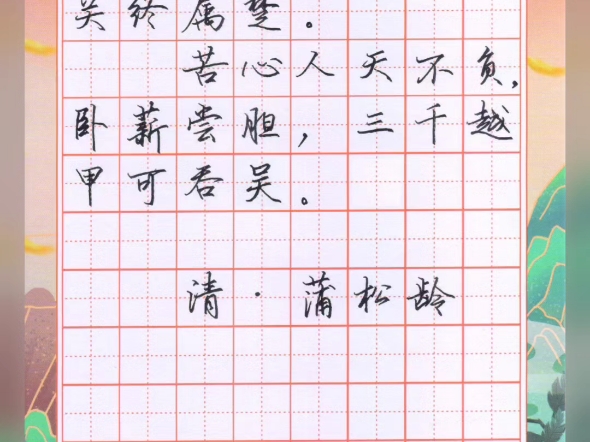 关终属楚。
苦心人天不负,
卧薪尝胆,三千越
甲可吞吴。
清·蒲松龄